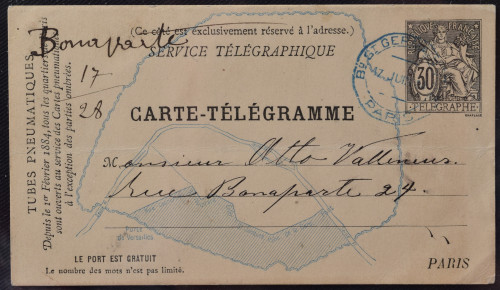 (Ce côté est exclusivement réservé à l'adresse.)
SERVICE TÉLÉGRAPHIQUE
Bonaparte
17
28
TUBES PNEUMATIQUES
Depuis le 1er Février 1884, tous les quartiers
sont ouverts au service des Cartes pneumatiques
à l'exception des parties ombrées.
30
TÉLÉGRAPHE
Bd St GERM
PARIS
CARTE-TÉLÉGRAMME
Monsieur Otto
Rue Bonaparte 27.
Porte
de Versailles
LE PORT EST GRATUIT
Le nombre des mots n'est pas limité.
PARIS